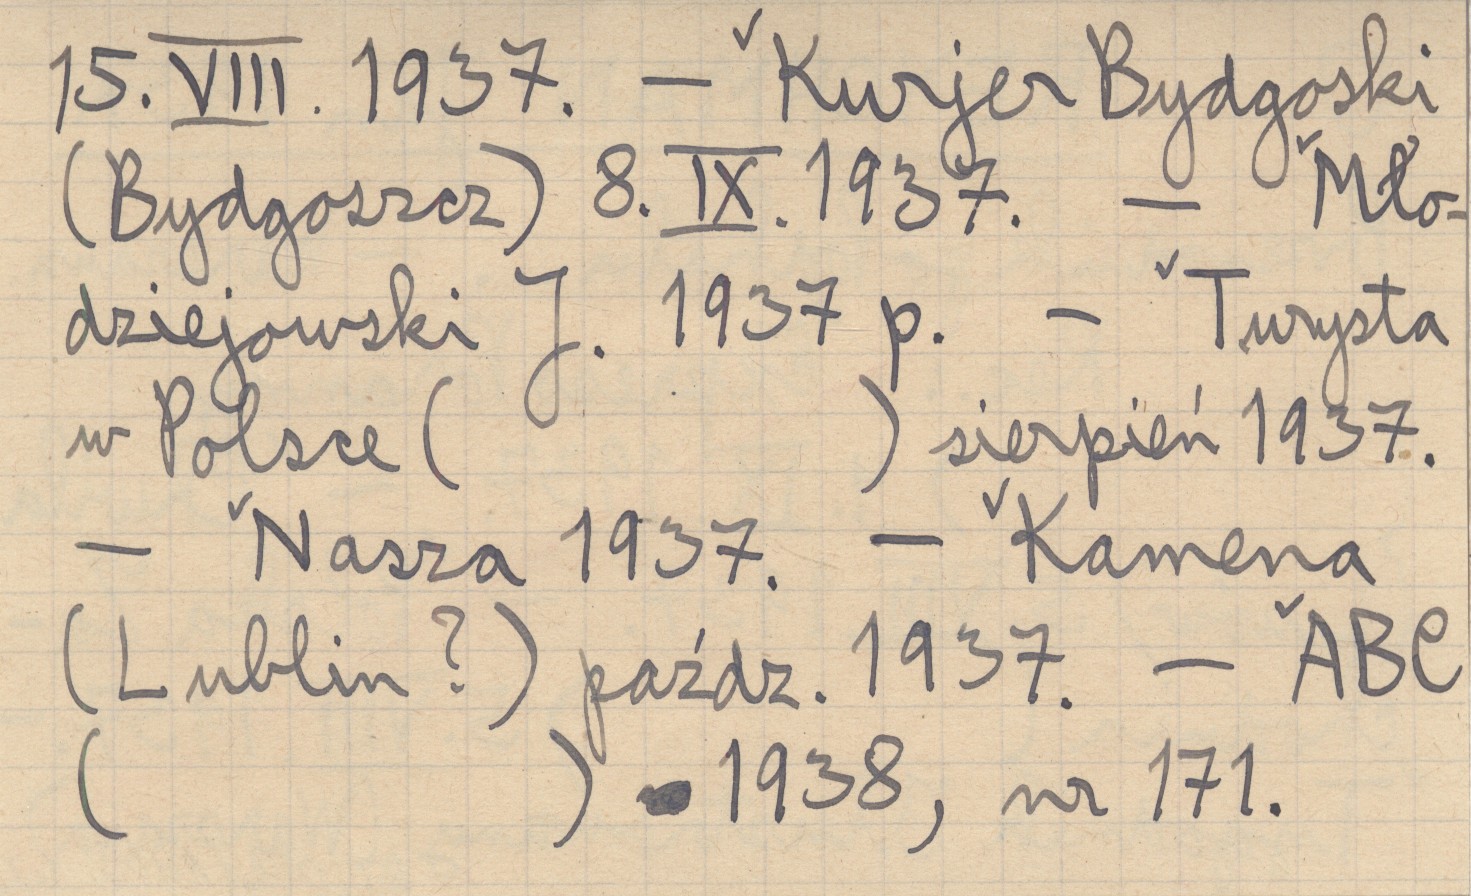 15. VIII. 1937. — ˇKurjer Bydgoski
(Bydgoszcz) 8. IX. 1937. — ˇMło-
dziejowski J. 1937 p. — ˇTurysta
w Polsce (          ) sierpień 1937.
— ˇNasza 1937. — ˇKamena
(Lublin?) paźdz. 1937. — ˇABC
(          ) 1938, nr 171.